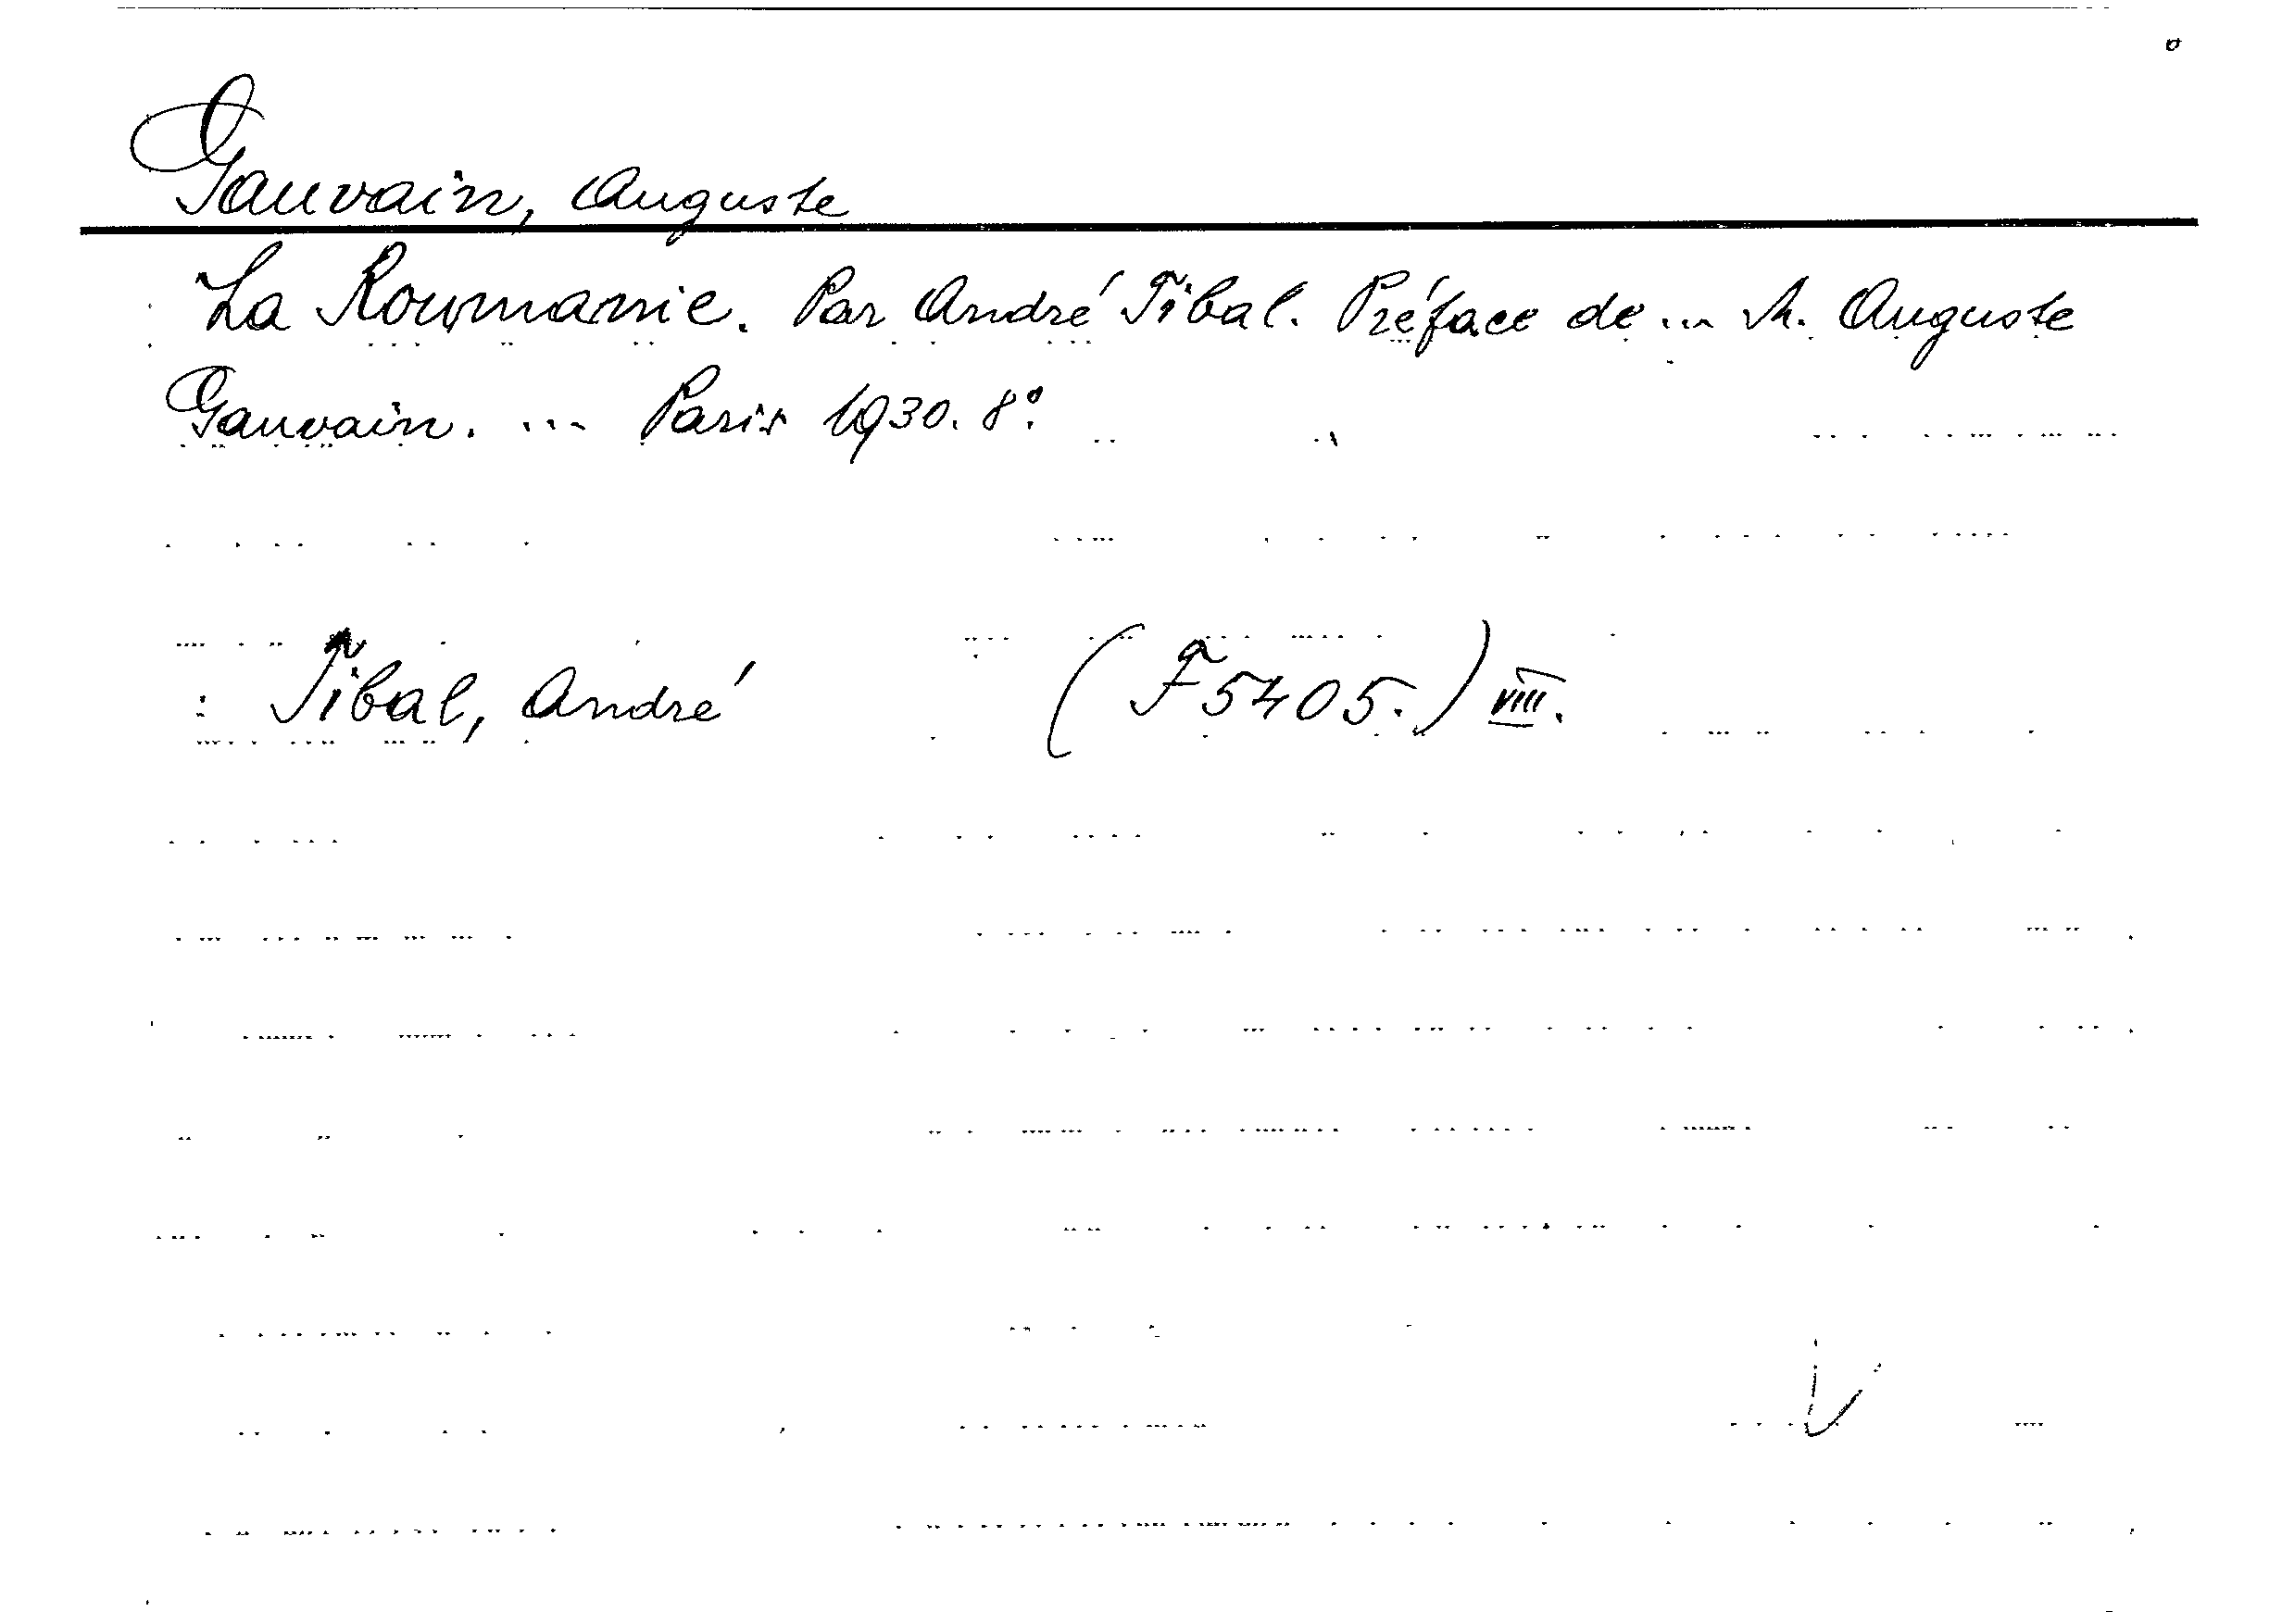 Gauvain, Auguste
La Roumanie. Par André Tibal. Préface de ... M. Auguste
Gauvain. ... Paris 1930. 8°.
: Tibal, André (F 5405.) VIII.